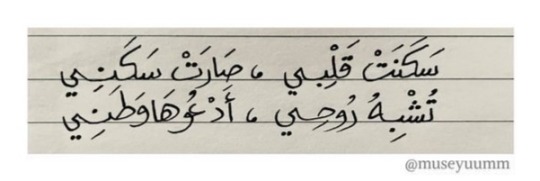 سَكَنَتْ قَلْبِي ، صَارَتْ سَكَنِي
تُشْبِهُ رُوحِي ، أَدْعُوهَا وَطَنِي
@museyuumm